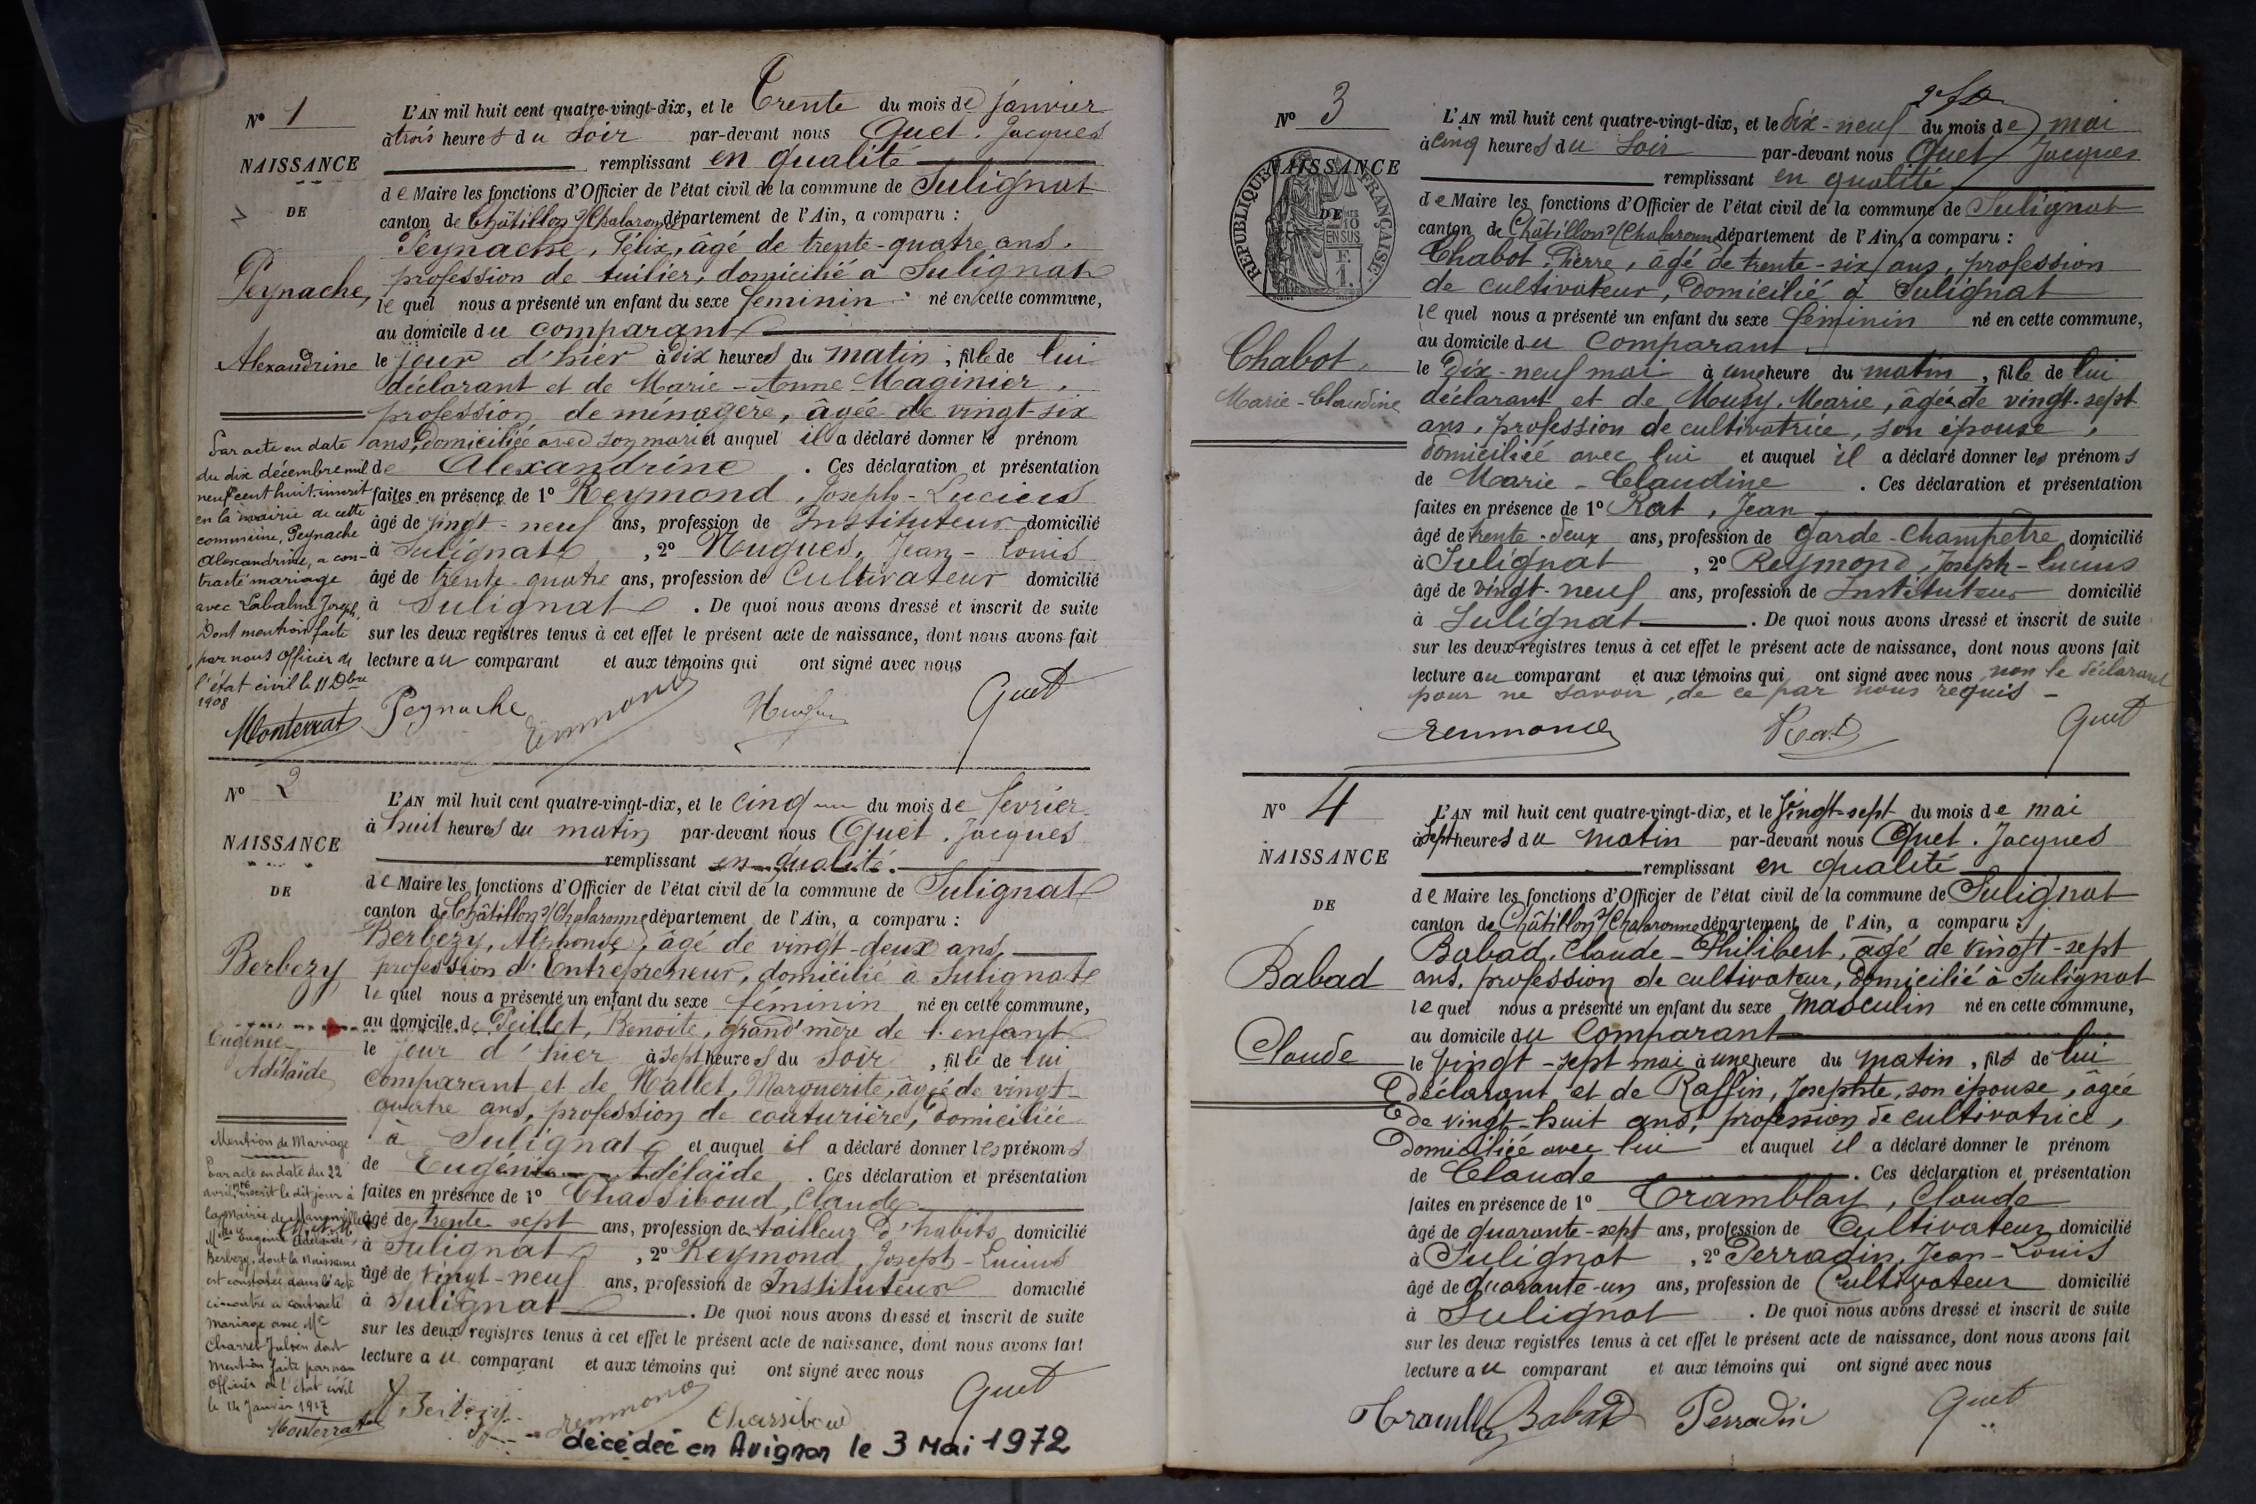 N° 1
NAISSANCE
DE
Peynache,
Alexandrine
Par acte en date
du dix décembre mil
neuf cent huit inscrit
en la mairie de cette
commune, Peynache
Alexandrine, a con-
tracté mariage
avec Labalme Joseph,
Dont mention faite
par nous Officier de
l'état civil le 11 Xbre
1908
Monterrat
L'AN mil huit cent quatre-vingt-dix, et le Trente du mois de janvier
à trois heures du soir par-devant nous Quet, Jacques
remplissant en qualité
de Maire les fonctions d'Officier de l'état civil de la commune de Sulignat
canton de Châtillon s/Chalaronne département de l'Ain, a comparu :
Peynache, Félix, âgé de trente-quatre ans,
profession de tuilier, domicilié à Sulignat
lequel nous a présenté un enfant du sexe féminin né en cette commune,
au domicile du comparant
le jour d'hier à dix heures du matin, fille de lui
déclarant et de Marie-Anne Maginier,
profession de ménagère, âgée de vingt-six
ans, domiciliée avec son mari et auquel il a déclaré donner le prénom
de Alexandrine. Ces déclaration et présentation
faites en présence de 1° Reymond, Joseph-Lucius
âgé de vingt-neuf ans, profession de Instituteur domicilié
à Sulignat, 2° Hugues, Jean-Louis
âgé de trente-quatre ans, profession de Cultivateur domicilié
à Sulignat. De quoi nous avons dressé et inscrit de suite
sur les deux registres tenus à cet effet le présent acte de naissance, dont nous avons fait
lecture au comparant et aux témoins qui ont signé avec nous
Peynache Reymond Hugues Quet
N° 2
NAISSANCE
DE
Berbezy
Eugénie
Adélaïde
Mention de Mariage
Par acte en date du 22
avril inscrit le dit jour à
la mairie de
Melle Eugénie Adélaïde
Berbezy, dont la naissance
est constatée dans l'acte
ci-contre a contracté
mariage avec Mr
Charret Julien dont
Mention faite par nous
Officier de l'état civil
le 14 Janvier 1917
Monterrat
L'AN mil huit cent quatre-vingt-dix, et le cinq du mois de février
à huit heures du matin par-devant nous Quet, Jacques
remplissant en qualité.
de Maire les fonctions d'Officier de l'état civil de la commune de Sulignat
canton de Châtillon s/Chalaronne département de l'Ain, a comparu :
Berbezy, Alphonse, âgé de vingt-deux ans,
profession d'Entrepreneur, domicilié à Sulignat
lequel nous a présenté un enfant du sexe féminin né en cette commune,
au domicile de Peillet, Benoite, grand'mère de l'enfant
le jour d'hier à sept heures du soir, fille de lui
comparant et de Mallet, Marguerite, âgée de vingt-
quatre ans, profession de couturière, domiciliée
à Sulignat et auquel il a déclaré donner les prénoms
de Eugénie Adélaïde. Ces déclaration et présentation
faites en présence de 1° Chassiboud, Claude
âgé de trente-sept ans, profession de tailleur d'habits domicilié
à Sulignat, 2° Reymond, Joseph-Lucius
âgé de vingt-neuf ans, profession de Instituteur domicilié
à Sulignat. De quoi nous avons dressé et inscrit de suite
sur les deux registres tenus à cet effet le présent acte de naissance, dont nous avons fait
lecture au comparant et aux témoins qui ont signé avec nous
A. Berbezy Reymond Chassiboud Quet
décédée en Avignon le 3 Mai 1972
N° 3
NAISSANCE
DE
RÉPUBLIQUE FRANÇAISE
Chabot,
Marie-Claudine
L'AN mil huit cent quatre-vingt-dix, et le dix-neuf du mois de mai
à cinq heures du soir par-devant nous Quet Jacques
remplissant en qualité
de Maire les fonctions d'Officier de l'état civil de la commune de Sulignat
canton de Châtillon s/Chalaronne département de l'Ain, a comparu :
Chabot, Pierre, âgé de trente-six ans, profession
de cultivateur, domicilié à Sulignat
lequel nous a présenté un enfant du sexe féminin né en cette commune,
au domicile du comparant
le Dix-neuf mai à une heure du matin, fille de lui
déclarant et de Mouzy, Marie, âgée de vingt-sept
ans, profession de cultivatrice, son épouse,
domiciliée avec lui et auquel il a déclaré donner les prénoms
de Marie-Claudine. Ces déclaration et présentation
faites en présence de 1° Rat, Jean
âgé de trente-deux ans, profession de garde-champêtre domicilié
à Sulignat, 2° Reymond, Joseph-Lucius
âgé de vingt-neuf ans, profession de Instituteur domicilié
à Sulignat. De quoi nous avons dressé et inscrit de suite
sur les deux registres tenus à cet effet le présent acte de naissance, dont nous avons fait
lecture au comparant et aux témoins qui ont signé avec nous non le déclarant
pour ne savoir, de ce par nous requis -
Reymond Rat Quet
N° 4
NAISSANCE
DE
Babad
Claude
L'AN mil huit cent quatre-vingt-dix, et le Vingt-sept du mois de mai
à sept heures du matin par-devant nous Quet, Jacques
remplissant en qualité
de Maire les fonctions d'Officier de l'état civil de la commune de Sulignat
canton de Châtillon s/Chalaronne département de l'Ain, a comparu :
Babad, Claude-Philibert, âgé de vingt-sept
ans, profession de cultivateur, domicilié à Sulignat
lequel nous a présenté un enfant du sexe masculin né en cette commune,
au domicile du comparant
le vingt-sept mai à une heure du matin, fils de lui
Déclarant et de Raffin, Josephte, son épouse, âgée
de vingt-huit ans, profession de cultivatrice,
Domiciliée avec lui et auquel il a déclaré donner le prénom
de Claude. Ces déclaration et présentation
faites en présence de 1° Tramblay, Claude
âgé de quarante-sept ans, profession de Cultivateur domicilié
à Sulignat, 2° Perradin, Jean-Louis
âgé de quarante-un ans, profession de Cultivateur domicilié
à Sulignat. De quoi nous avons dressé et inscrit de suite
sur les deux registres tenus à cet effet le présent acte de naissance, dont nous avons fait
lecture au comparant et aux témoins qui ont signé avec nous
Tramblay Babad Perradin Quet